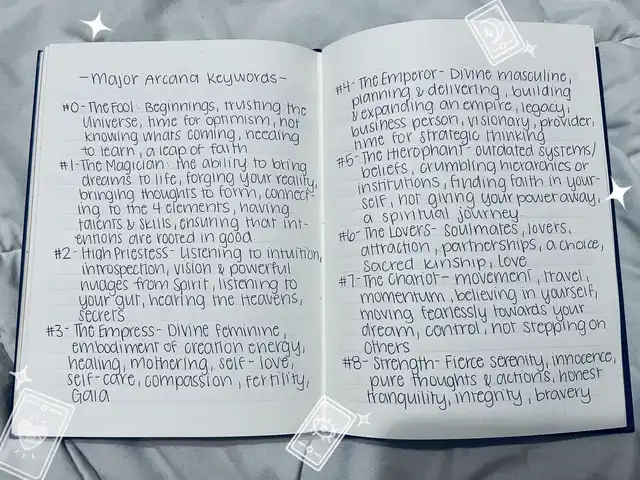 -Major Arcana Keywords-
#0-The Fool: Beginnings, trusting the
Universe, time for optimism, not
knowing whats coming, needing
to learn, a leap of faith
#1-The Magician: the ability to bring
dreams to life, forging your reality,
bringing thoughts to form, connect-
ing to the 4 elements, having
talents & skills, ensuring that int-
entions are rooted in good
#2- High Priestess- Listening to intuition,
introspection, vision & powerful
nuages from Spirit, listening to
your gut, hearing the Heavens,
secrets
#3- The Empress- Divine feminine,
embodiment of creation energy,
healing, mothering, self-love,
self-care, compassion, fertility,
Gaia
#4- The Emperor- Divine masculine,
planning & delivering, building
& expanding an empire, legacy,
business person, visionary, provider,
time for strategic thinking
#5- The Hierophant- outdated systems/
beliefs, crumbling hierarchies or
institutions, finding faith in your-
self, not giving your power away,
a spiritual journey
#6- The Lovers- Soulmates, lovers,
attraction, partnerships, a choice,
sacred kinship, love
#7- The Chariot- movement, travel,
momentum, believing in yourself,
moving fearlessly towards your
dream, control, not stepping on
others
#8- Strength- Fierce serenity, innocence,
pure thoughts & actions, honest
tranquility, integrity, bravery